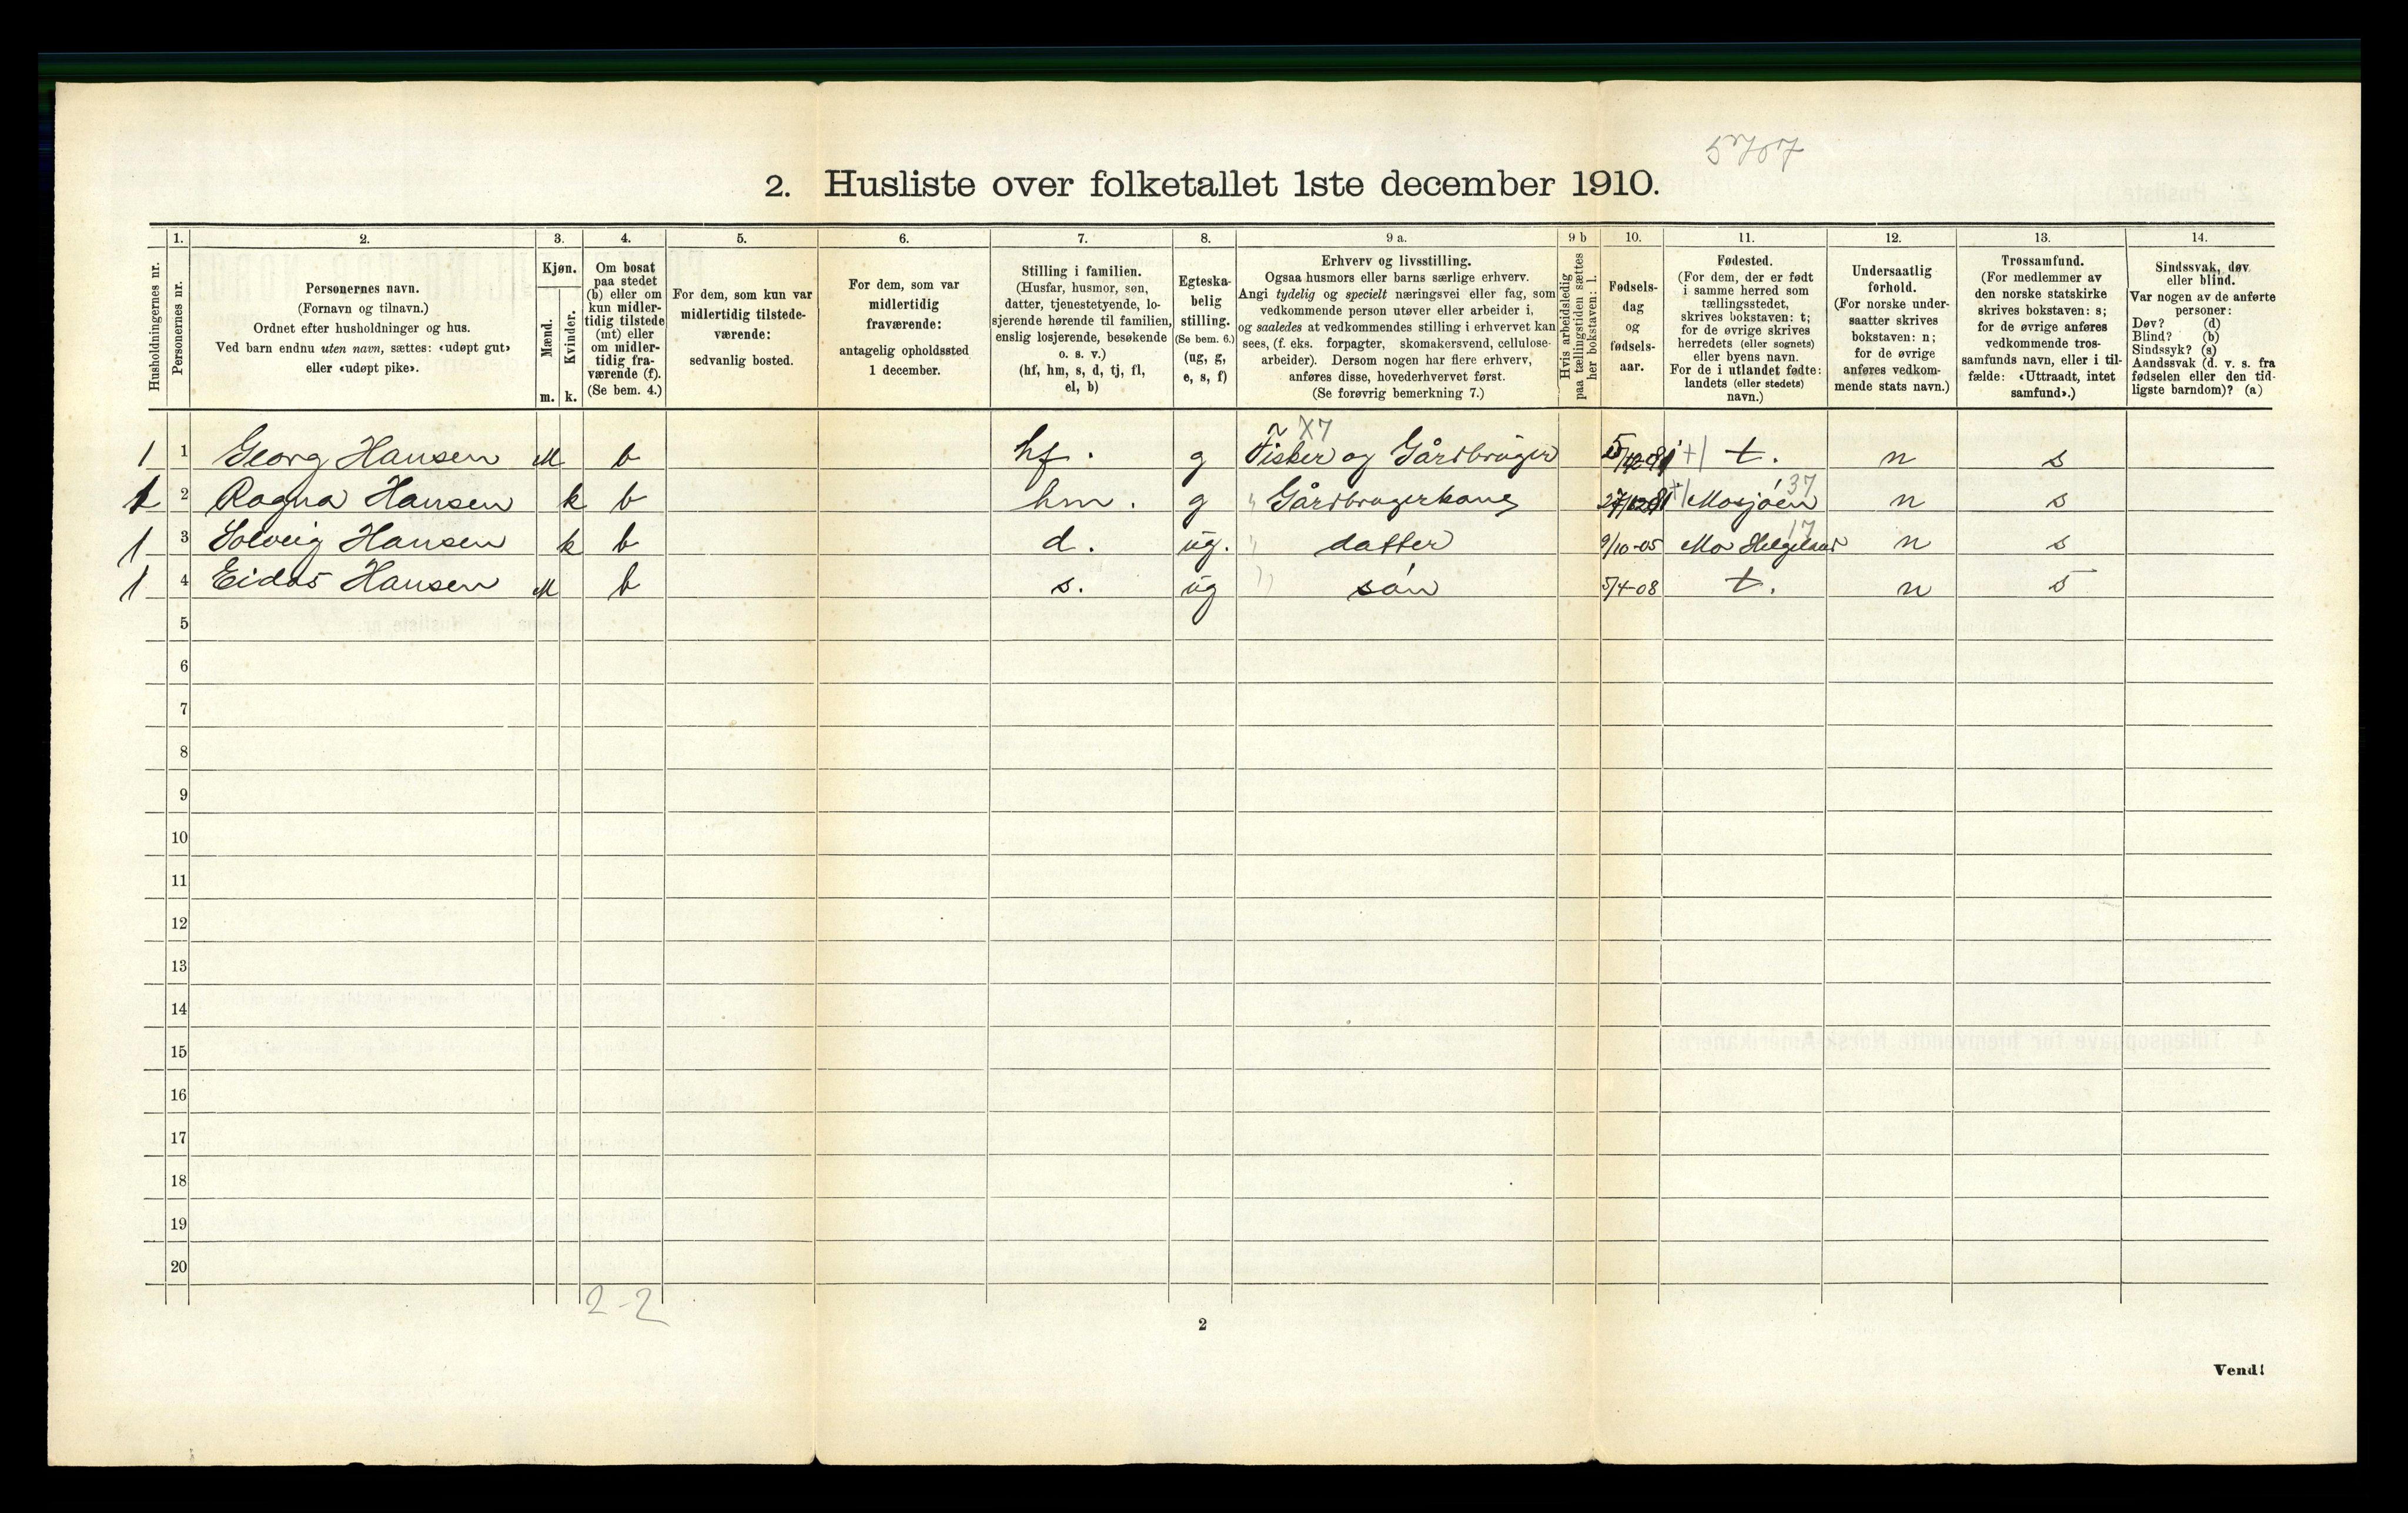 5707
2. Husliste over folketallet 1ste december 1910.
1. 2. 3. 4. 5. 6. 7. 8. 9 a. 9 b 10. 11. 12. 13. 14.
Husholdningernes nr.
Personernes nr.
Personernes navn.
(Fornavn og tilnavn.)
Ordnet efter husholdninger og hus.
Ved barn endnu uten navn, sættes: «udøpt gut»
eller «udøpt pike».
Kjøn.
Mænd.
Kvinder.
m. k.
Om bosat
paa stedet
(b) eller om
kun midler-
tidig tilstede
(mt) eller
om midler-
tidig fra-
værende (f).
(Se bem. 4.)
For dem, som kun var
midlertidig tilstede-
værende:
sedvanlig bosted.
For dem, som var
midlertidig
fraværende:
antagelig opholdssted
1 december.
Stilling i familien.
(Husfar, husmor, søn,
datter, tjenestetyende, lo-
sjerende hørende til familien,
enslig losjerende, besøkende
o. s. v.)
(hf, hm, s, d, tj, fl,
el, b)
Egteska-
belig
stilling.
(Se bem. 6.)
(ug, g,
e, s, f)
Erhverv og livsstilling.
Ogsaa husmors eller barns særlige erhverv.
Angi tydelig og specielt næringsvei eller fag, som
vedkommende person utøver eller arbeider i,
og saaledes at vedkommendes stilling i erhvervet kan
sees, (f. eks. forpagter, skomakersvend, cellulose-
arbeider). Dersom nogen har flere erhverv,
anføres disse, hovederhvervet først.
(Se forøvrig bemerkning 7.)
Hvis arbeidsledig
paa tællingstiden sættes
her bokstaven: l.
Fødsels-
dag
og
fødsels-
aar.
Fødested.
(For dem, der er født
i samme herred som
tællingsstedet,
skrives bokstaven: t;
for de øvrige skrives
herredets (eller sognets)
eller byens navn.
For de i utlandet fødte:
landets (eller stedets)
navn.)
Undersaatlig
forhold.
(For norske under-
saatter skrives
bokstaven: n;
for de øvrige
anføres vedkom-
mende stats navn.)
Trossamfund.
(For medlemmer av
den norske statskirke
skrives bokstaven: s;
for de øvrige anføres
vedkommende tros-
samfunds navn, eller i til-
fælde: «Uttraadt, intet
samfund».)
Sindssvak, døv
eller blind.
Var nogen av de anførte
personer:
Døv? (d)
Blind? (b)
Sindssyk? (s)
Aandssvak (d. v. s. fra
fødselen eller den tid-
ligste barndom)? (a)
X7
1 1 Georg Hansen M b hf. g Fisker og Gårdbruger t. n s
37
1 2 Ragna Hansen k b hm. g " Gårdbrugerkone Mosjøen n s
17
1 3 Solveig Hansen k b d. ug. " datter 9/10-05 Mo Helgeland n s
1 4 Eidas Hansen M b s. ug " søn 5/4-08 t. n s
5
6
7
8
9
10
11
12
13
14
15
16
17
18
19
20
2-2
2
Vend!